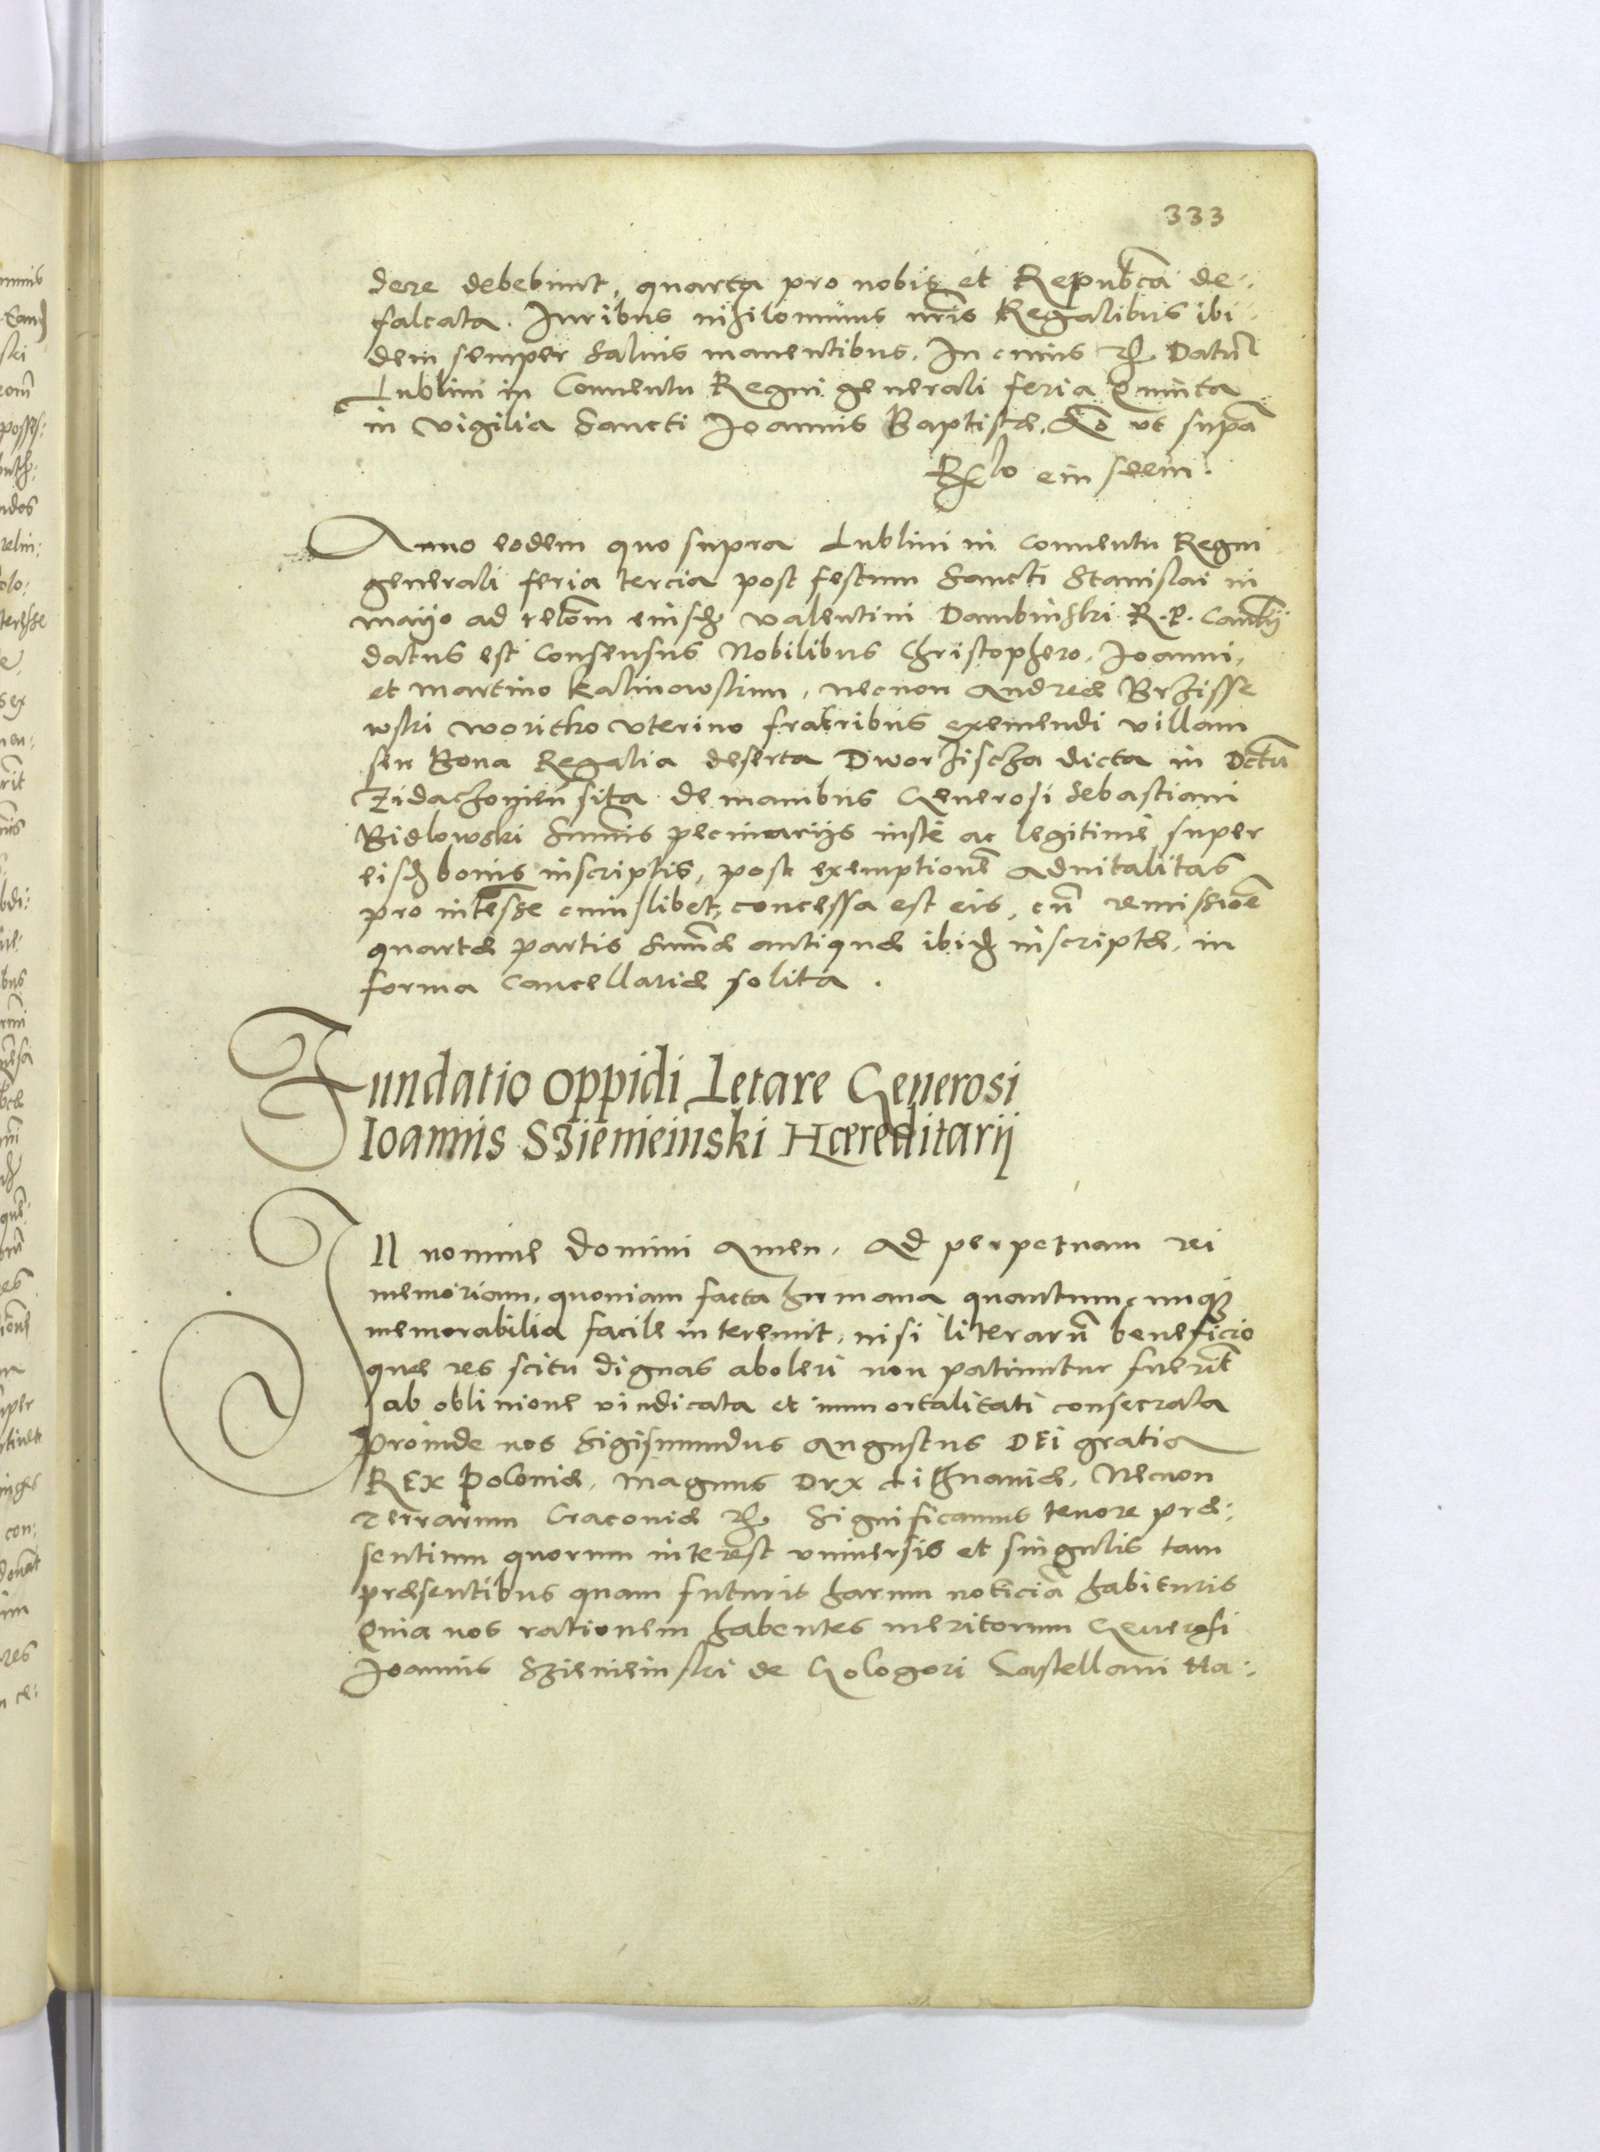 333
dere debebunt, quarta pro nobis et Republca de-
falcata. Iuribus nihilominus nris Regalibus ibi
dem semper saluis manentibus. In cuius Datu
Lublini in Conuentu Regni generali feria Quinta
in vigilia Sancti Ioannis Baptistæ. ut supa
Rlo eiusdem.
Anno eodem quo supra Lublini in conuentu Regni
generali feria tercia post festum Sancti Stanislai in
mayo ad relõm eiusd Valentini Dambinski R. P. Cancrij
datus est Consensus Nobilibus Christophero, Ioanni,
et Martino Kalinowskim, necnon Andreæ Brzisse
wski Woritko vterino fratribus exemendi villam
seu Bona Regalia deserta Dworzischa dicta in Dctu
Zidachouien sita de manibus Generosi Sebastiani
Bidlowski summis pecuniarijs iuste ac legitime super
eisd bonis inscriptis, post exemptione aduitalitas
pro intesse cuiuslibet, concessa est eis, cu remissioe
quartæ partis summæ antiquæ ibid inscriptæ, in
forma Cancellariæ solita.
Fundatio oppidi Letare Generosi
Ioannis Szienieinski Hæreditarij
IN nomine Domini Amen. Ad perpetuam rei
memoriam, quoniam facta humana quantumcunque
memorabilia facile intereunt, nisi literaru beneficio
quæ res scitu dignas aboleri non patiuntur fuerit
ab obliuione vindicata et immortalitati consecrata
Proinde nos Sigismundus Augustus DEI gratia
REX Poloniæ, Magnus Dux Lithuaniæ, Necnon
Terrarum Cracouiæ Significamus tenore præ-
sentium quorum interest vniuersis et singulis tam
præsentibus quam futuris harum noticiã habituris
Quia nos rationem habentes meritorum Generosi
Ioannis Szienieinski de Gologori Castellani Ha-